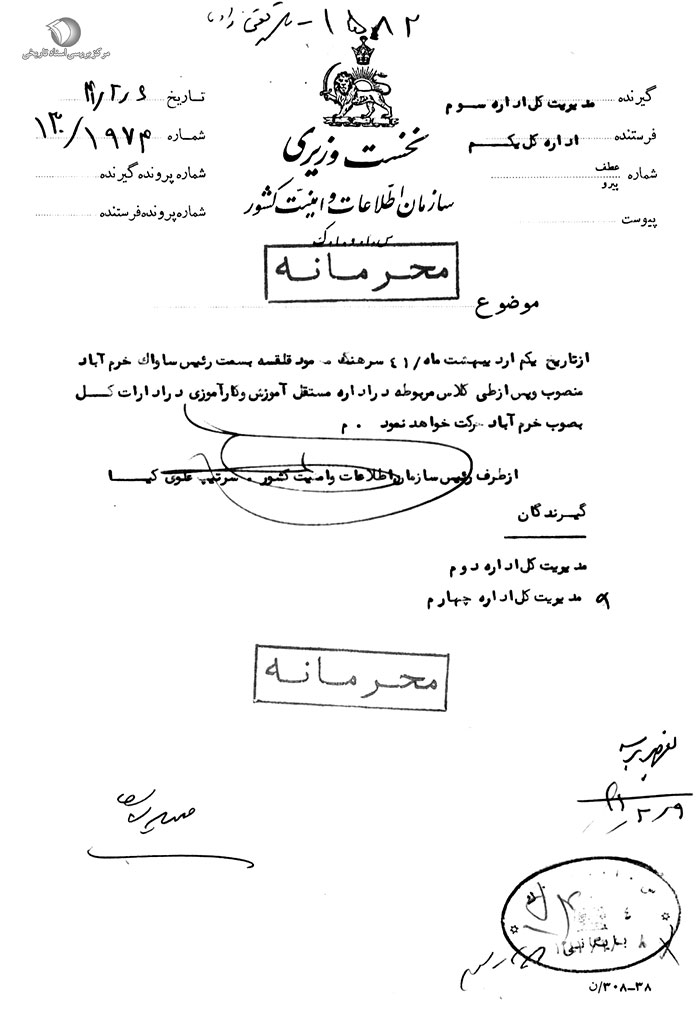 مرکز بررسی اسناد تاریخی
۱۵۸۲
گیرنده مدیریت کل اداره سوم
فرستنده اداره کل یکم
شماره عطف پیرو
پیوست
نخست وزیری
سازمان اطلاعات و امنیت کشور
تاریخ ۴۱/۲/۶
شماره ۱۳۰/۱۹۷۴
شماره پرونده گیرنده
شماره پرونده فرستنده
محرمانه
موضوع
ازتاریخ یکم اردیبهشت ماه ۴۱/ سرهنگ قلقسه بسمت رئیس ساواك خرم آباد
منصوب وپس ازطی کلاس مربوطه در اداره مستقل آموزش وکارآموزی در ادارات کل
بصوب خرم آباد حرکت خواهد نمود . م
ازطرف رئیس سازمان اطلاعات وامنیت کشور . سرتیپ علوی کیا
گیرندگان
مدیریت کل اداره دوم
مدیریت کل اداره چهارم
محرمانه
۴۱/۲/۹
بایگانی
۳۰۸-۳۸/ن